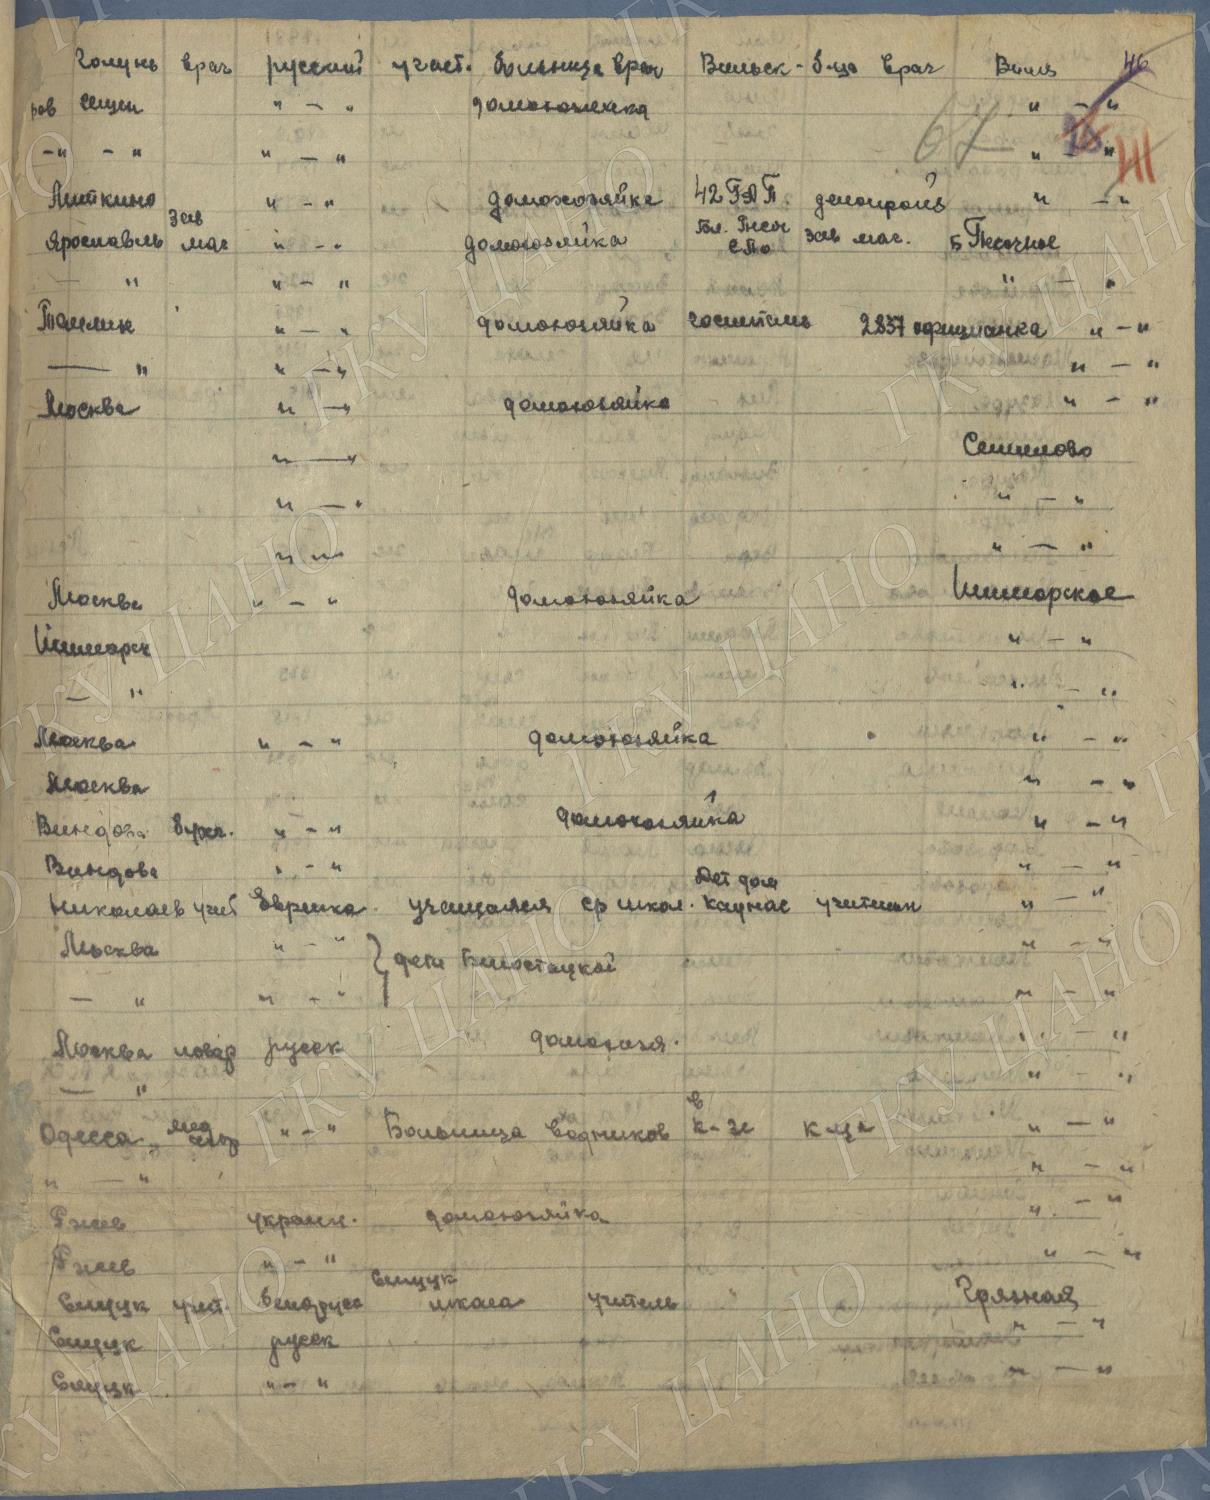 Голунь врач русский участ. больница врач Вильск. б-ца врач Виля 46
ров " — " домохозяйка " — "
— " — " " — " 67 " — " 41
Ляткино " — " домохозяйка 42 делопроиз " — "
Ярославль зав маг " — " домохозяйка Бл. Песоч СПо зав маг. Б Песочное
— " " — " " — "
" — " домохозяйка госпиталь 2837 официанка " — "
— " " — " " — "
Москва " — " домохозяйка " — "
" — " Семилово
" — " " — "
" — " " — "
Москва " — " домохозяйка Шиморское
Шиморск " — "
— " " — "
Москва " — " домохозяйка " — "
Москва " — "
Виндова бухг. " — " домохозяйка " — "
Виндова " — " " — "
Николаев учит Еврейка учащаяся ср школ. Дет дом Каунас учительн " — "
Москва " — " } дети Белостоцкой " — "
— " " — " " — "
Москва повар русск домохозя. " — "
— " " — "
Одесса мед сестр " — " Больница водников в к-зе к-ца " — "
" — " " — "
Ржев украин. домохозяйка " — "
Ржев " — " " — "
Слуцк учит. белорусс Слуцк школа учитель " Грязная
Слуцк русск " — "
Слуцк " — " " — "
ГКУ ЦАНО